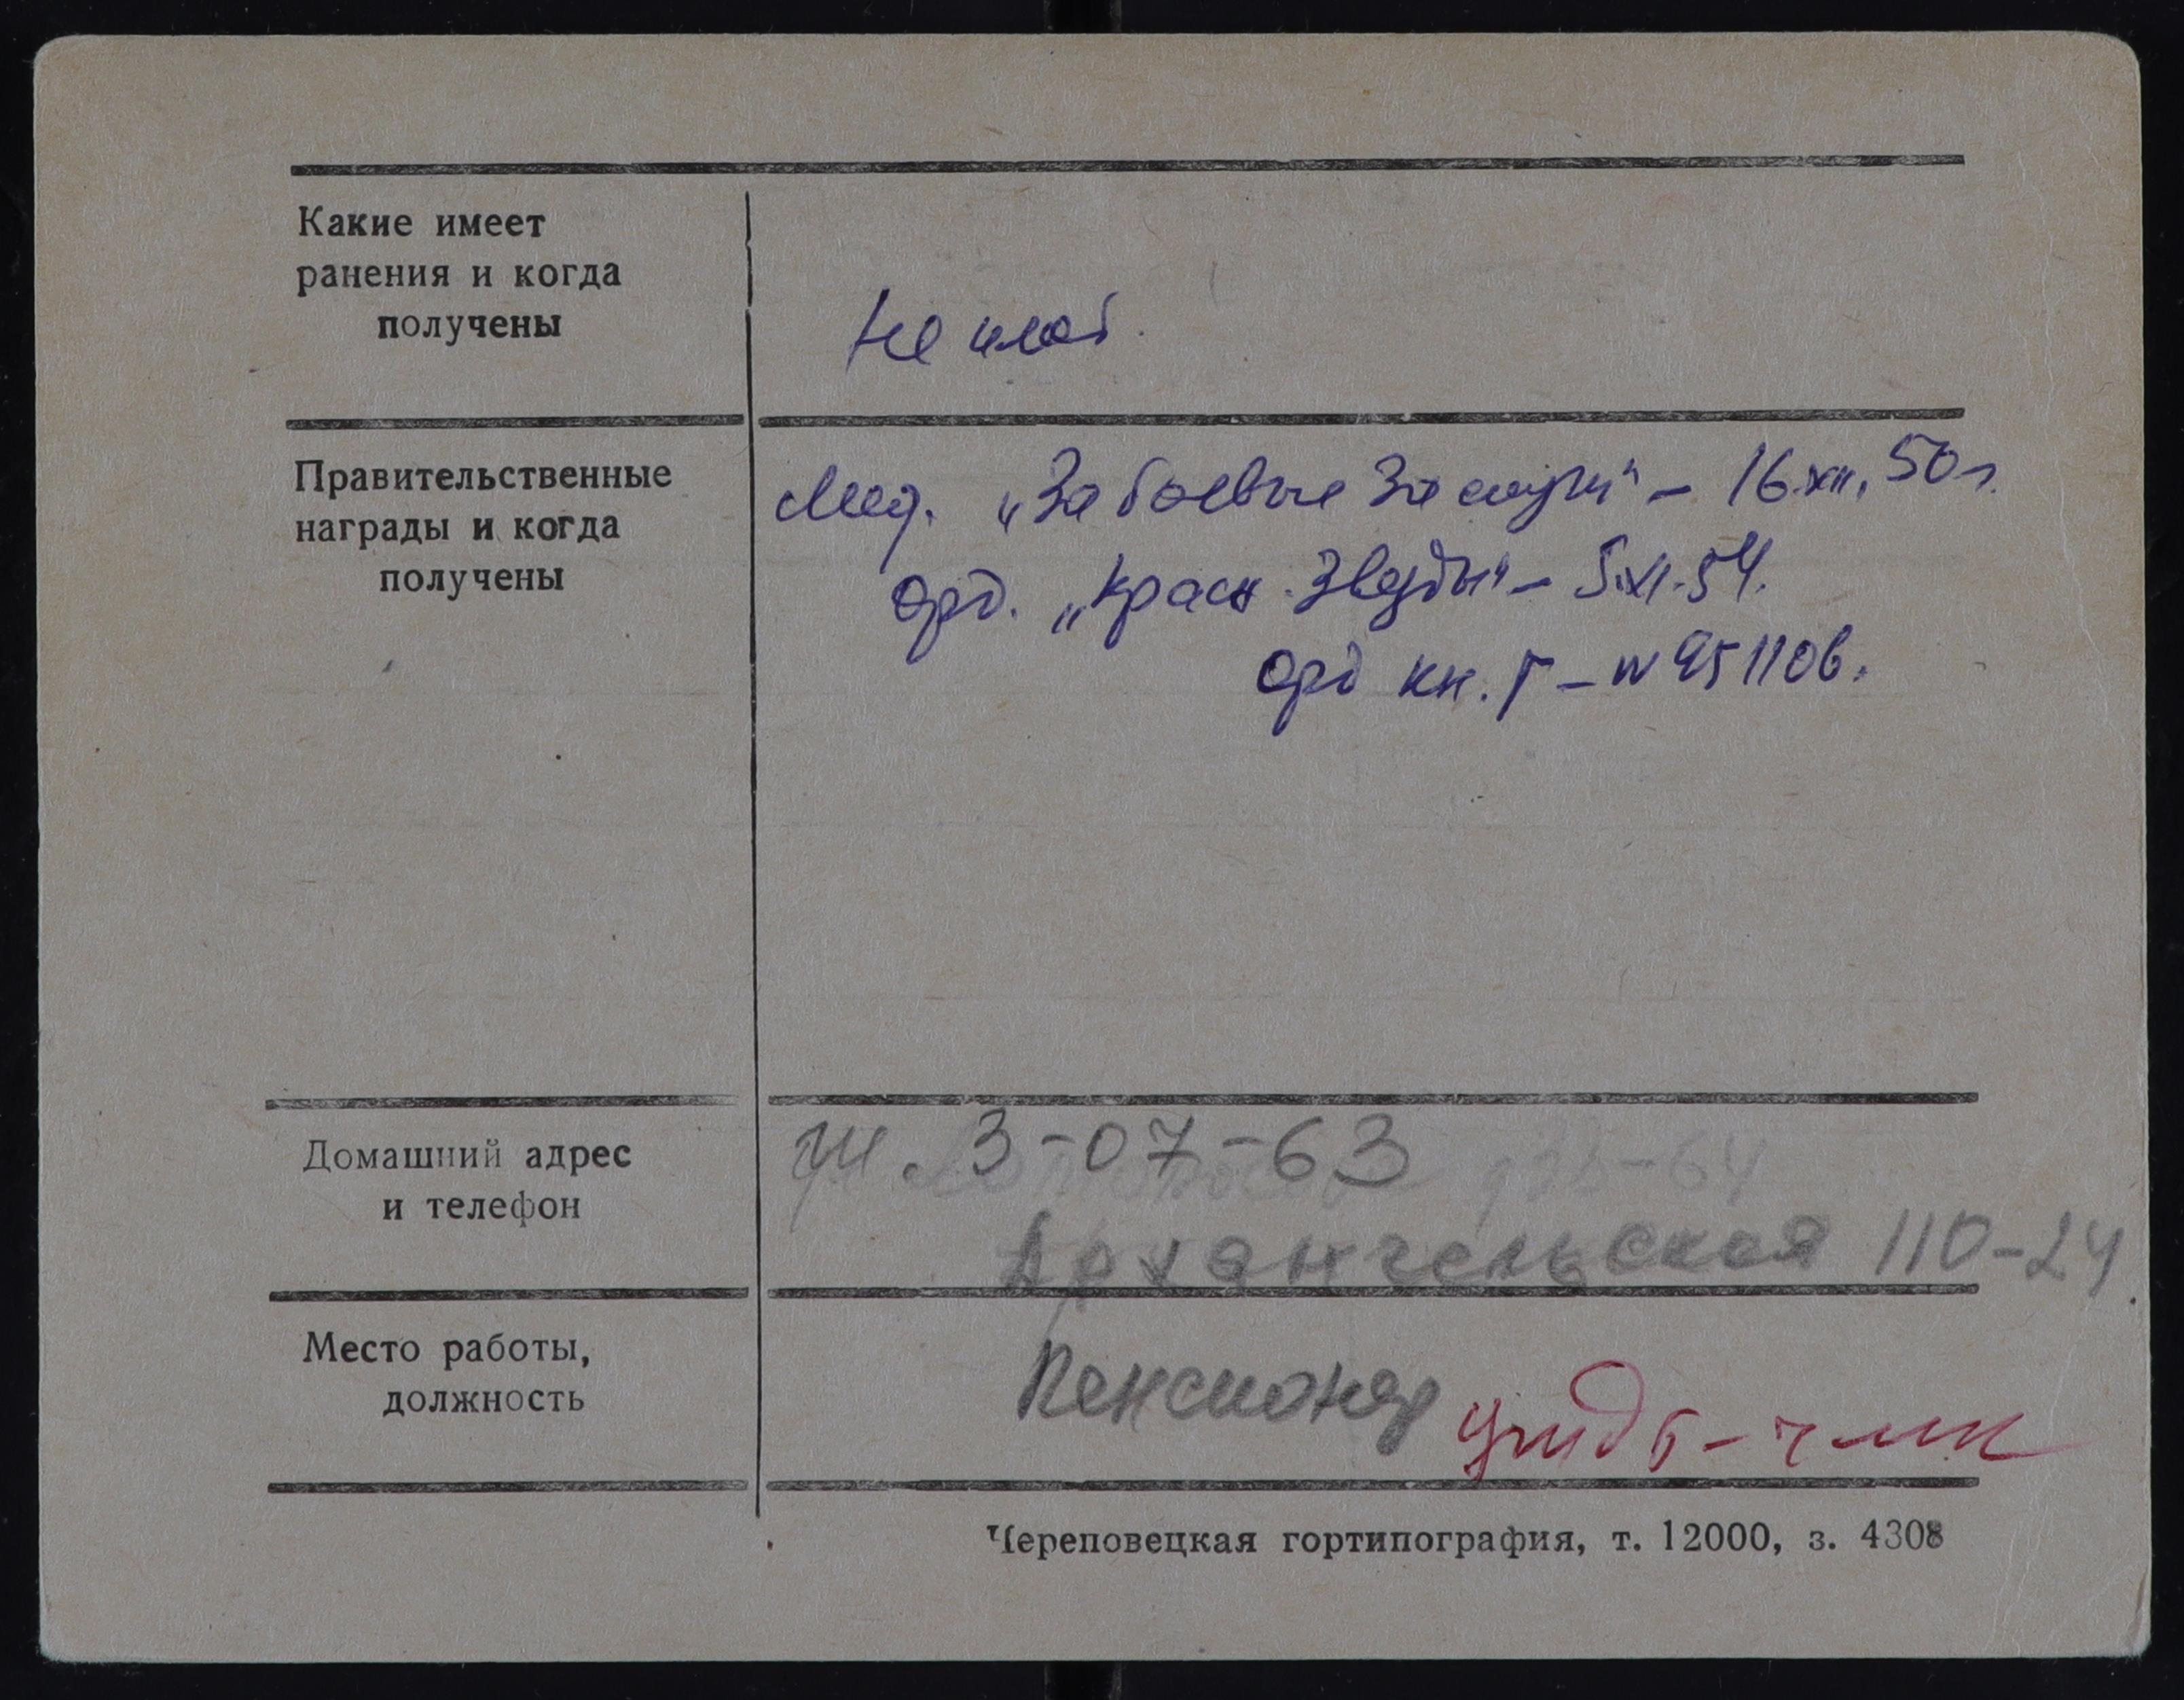 Какие имеет
ранения и когда
получены
Не имеет.
Правительственные
награды и когда
получены
Мед. „За боевые заслуги“ – 16.XII.50г.
орд. „Красн. Звезды“ – 5.XI.54.
орд кн. Г – № 951106.
Домашний адрес
и телефон
3-07-63
Архангельская 110-24
Место работы,
должность
Пенсионер
– ЧМК
Череповецкая гортипография, т. 12000, з. 4308